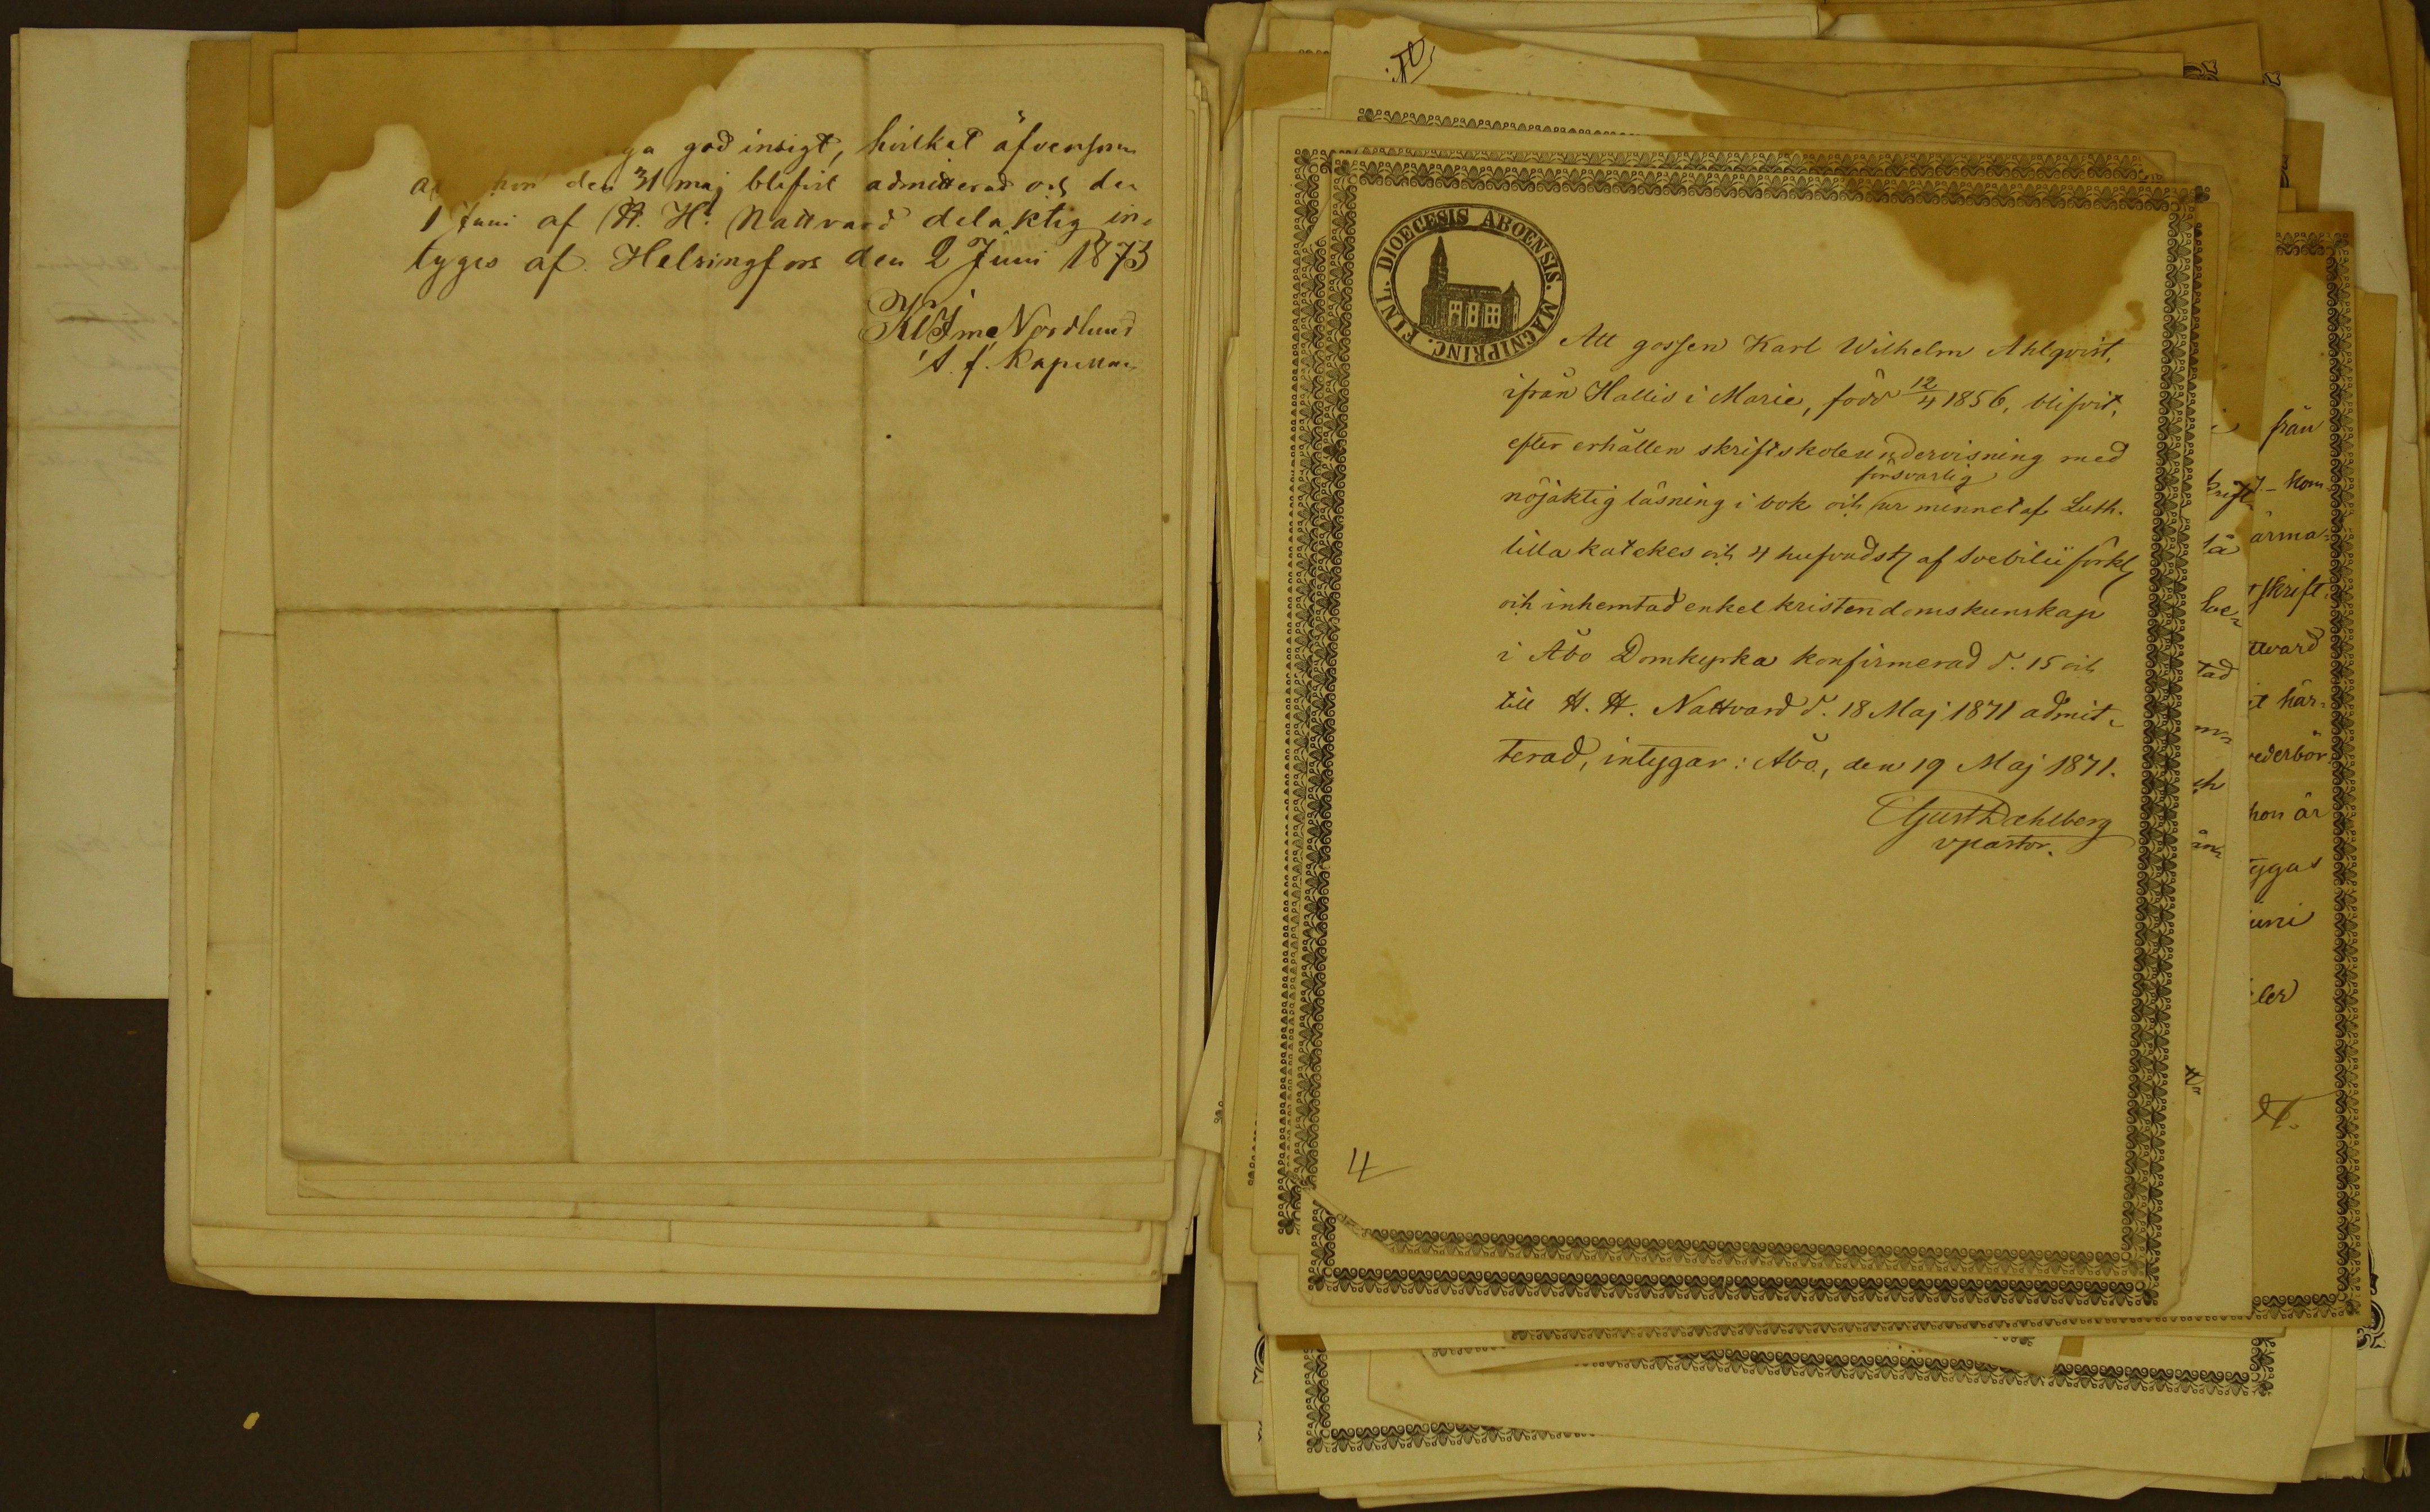 god insigt, hvilket äfvensom
hon den 31 maj blifvit admitterad och den
1 Juni af H. H. Nattvard delaktig in-
tyges af. Helsingfors den 2 Juni 1873
Nordlund
FINL. DIOECESIS ABOENSIS. MAGNIPRINC.
Att gossen Karl Wilhelm Ahlqvist,
ifrån Hallis i Marie, född 12/4 1856, blifvit,
efter erhållen skriftskoleundervisning med
försvarlig
nöjaktig läsning i bok och ur minnet af Luth.
lilla katekes och 4 hufvudst af Svebilii förkl
och inhemtad enkel kristendomskunskap
i Åbo Domkyrka konfirmerad d. 15 och
till H. H. Nattvard d. 18 Maj 1871 admit-
terad, intygar: Åbo, den 19 Maj 1871.
Gust Dahlberg
vpastor.
4
från
ärma-
skrift
ttvard
t här-
vederbör
hon är
ygas
uni
ler